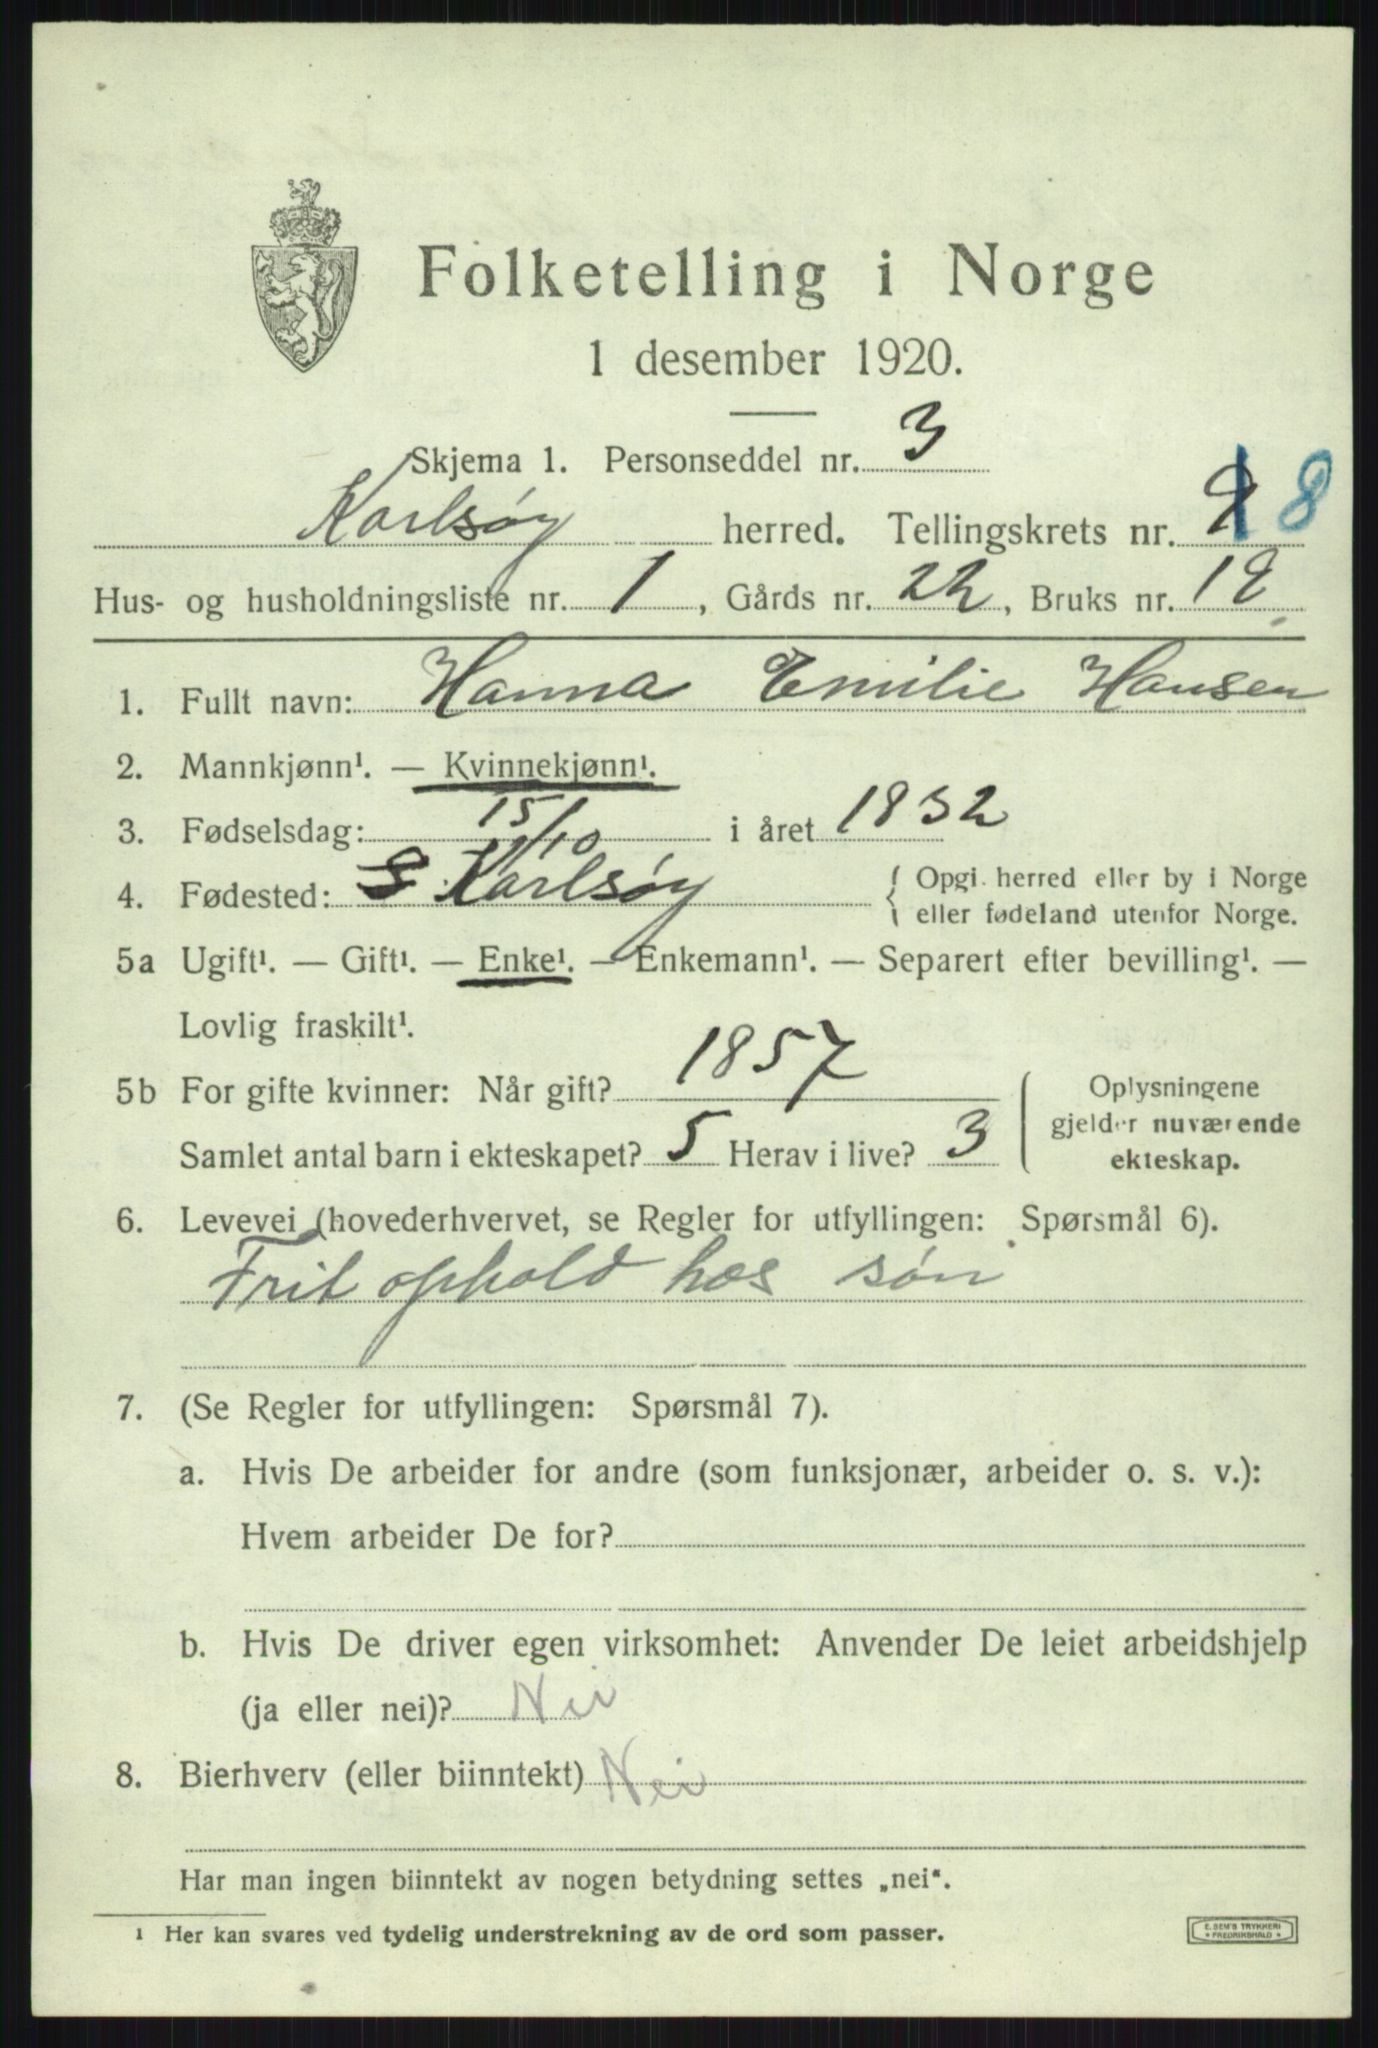 Folketelling i Norge
1 desember 1920.
Skjema 1. Personseddel nr. 3
Karlsøy herred. Tellingskrets nr. 8
Hus- og husholdningsliste nr. 1, Gårds nr. 22, Bruks nr. 12
1. Fullt navn: Hanna Emilie Hansen
2. Mannkjønn¹. — Kvinnekjønn¹.
3. Fødselsdag: 15/10 i året 1832
4. Fødested: Karlsøy { Opgi herred eller by i Norge
eller fødeland utenfor Norge.
5a Ugift¹. — Gift¹. — Enke¹. — Enkemann¹. — Separert efter bevilling¹. —
Lovlig fraskilt¹.
5b For gifte kvinner: Når gift? 1857
Samlet antal barn i ekteskapet? 5 Herav i live? 3
Oplysningene
gjelder nuværende
ekteskap.
6. Levevei (hovederhvervet, se Regler for utfyllingen: Spørsmål 6).
Frit ophold hos søn
7. (Se Regler for utfyllingen: Spørsmål 7).
a. Hvis De arbeider for andre (som funksjonær, arbeider o. s. v.):
Hvem arbeider De for?
b. Hvis De driver egen virksomhet: Anvender De leiet arbeidshjelp
(ja eller nei)? Nei
8. Bierhverv (eller biinntekt) Nei
Har man ingen biinntekt av nogen betydning settes „nei“.
¹ Her kan svares ved tydelig understrekning av de ord som passer.
E. SEM'S TRYKKERI
* FREDRIKSHALD *